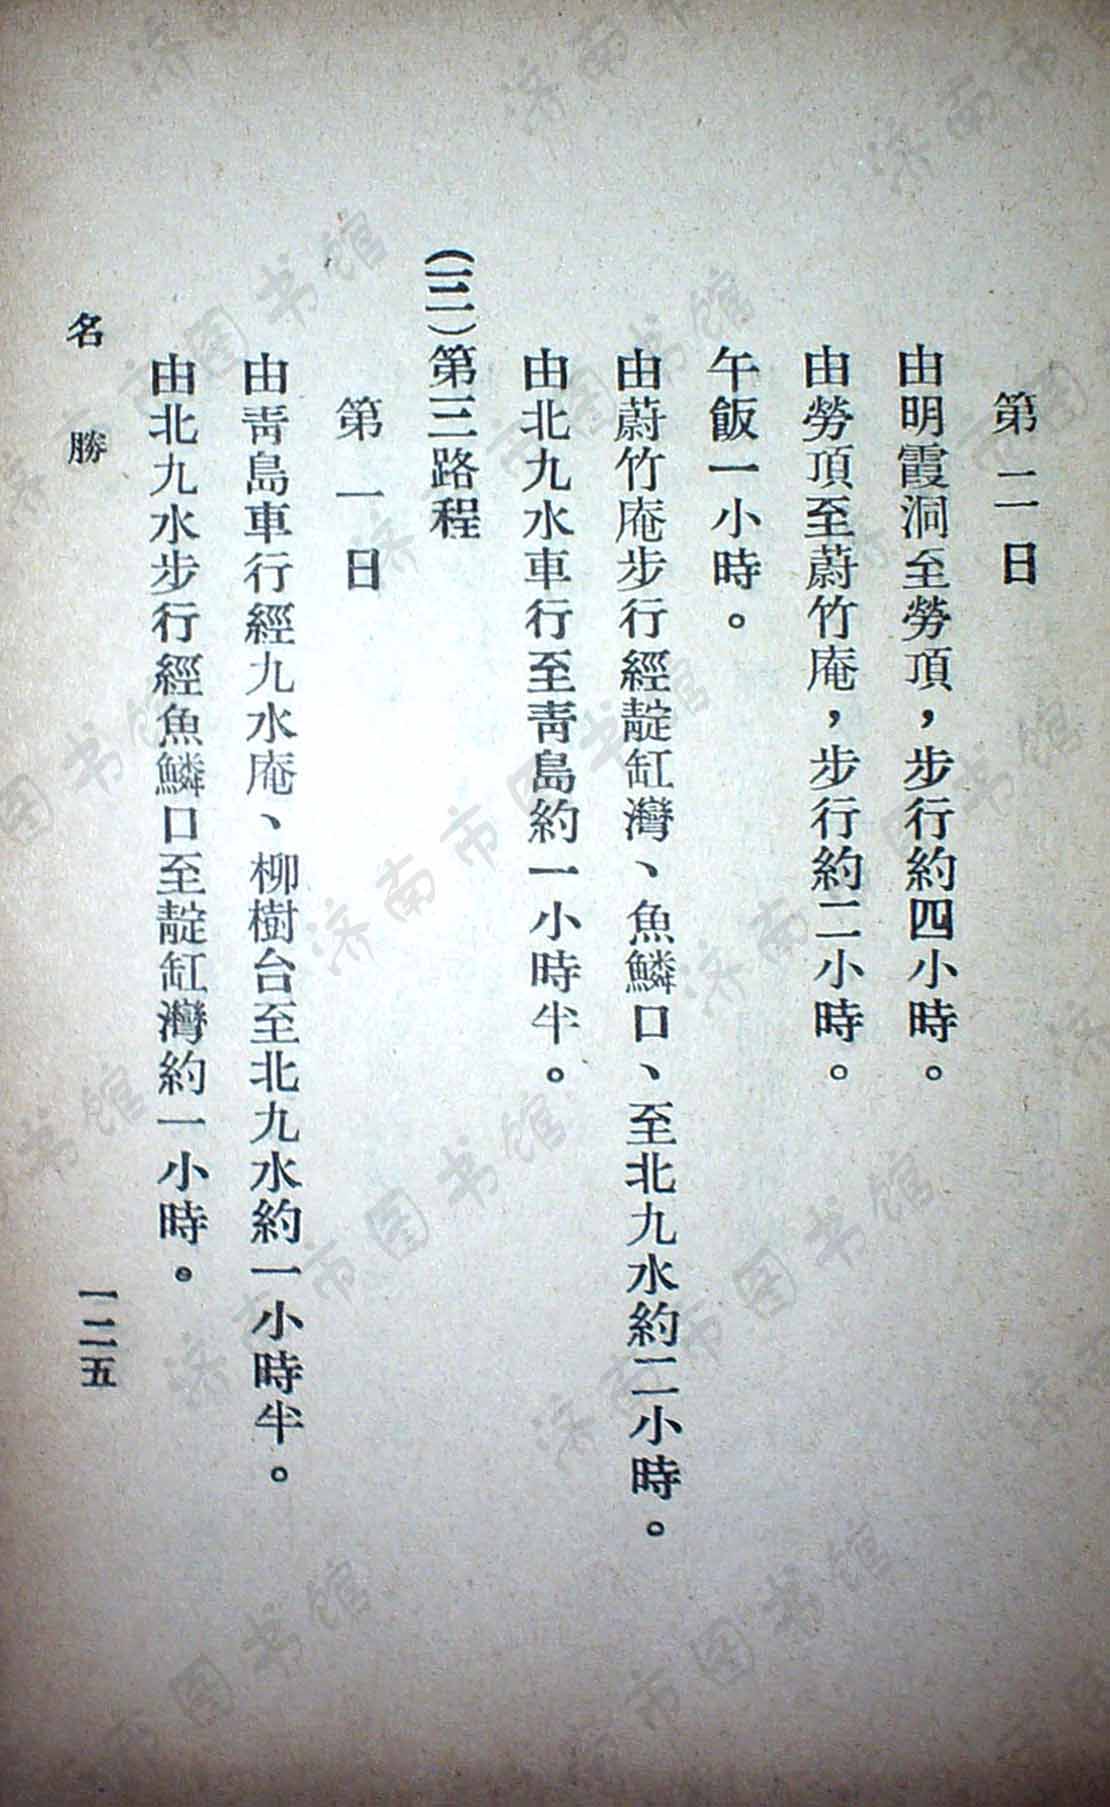 第二日
由明霞洞至勞頂，步行約四小時。
由勞頂至蔚竹庵，步行約二小時。
午飯一小時。
由蔚竹庵步行經靛缸灣、魚鱗口、至北九水約二小時。
由北九水車行至青島約一小時半。
(三)第三路程
第一日
由青島車行經九水庵、柳樹台至北九水約一小時半。
由北九水步行經魚鱗口至靛缸灣約一小時。
名勝
一二五
济南市图书馆